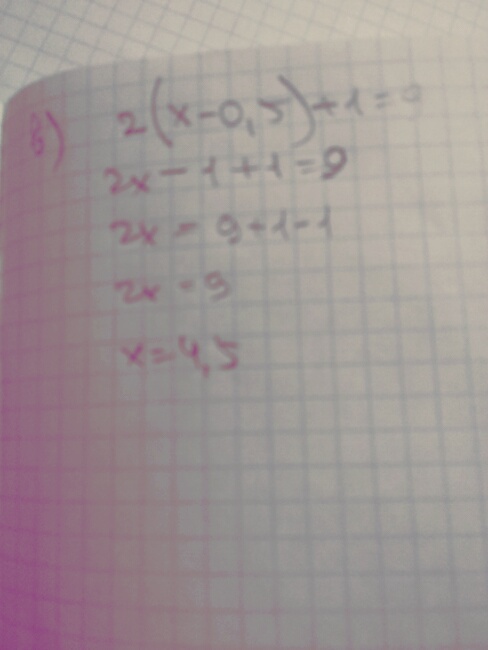 в) 2(x-0,5)+1=9
2x-1+1=9
2x=9+1-1
2x=9
x=4,5